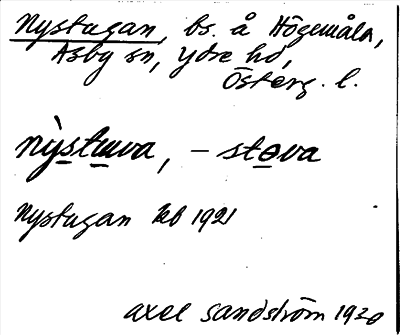 Nystugan, bs. å Högemåla,
Asby sn, Ydre hd,
Österg. l.
nỳstuva, – stova
Nystugan kb 1921
Axel Sandström 1930